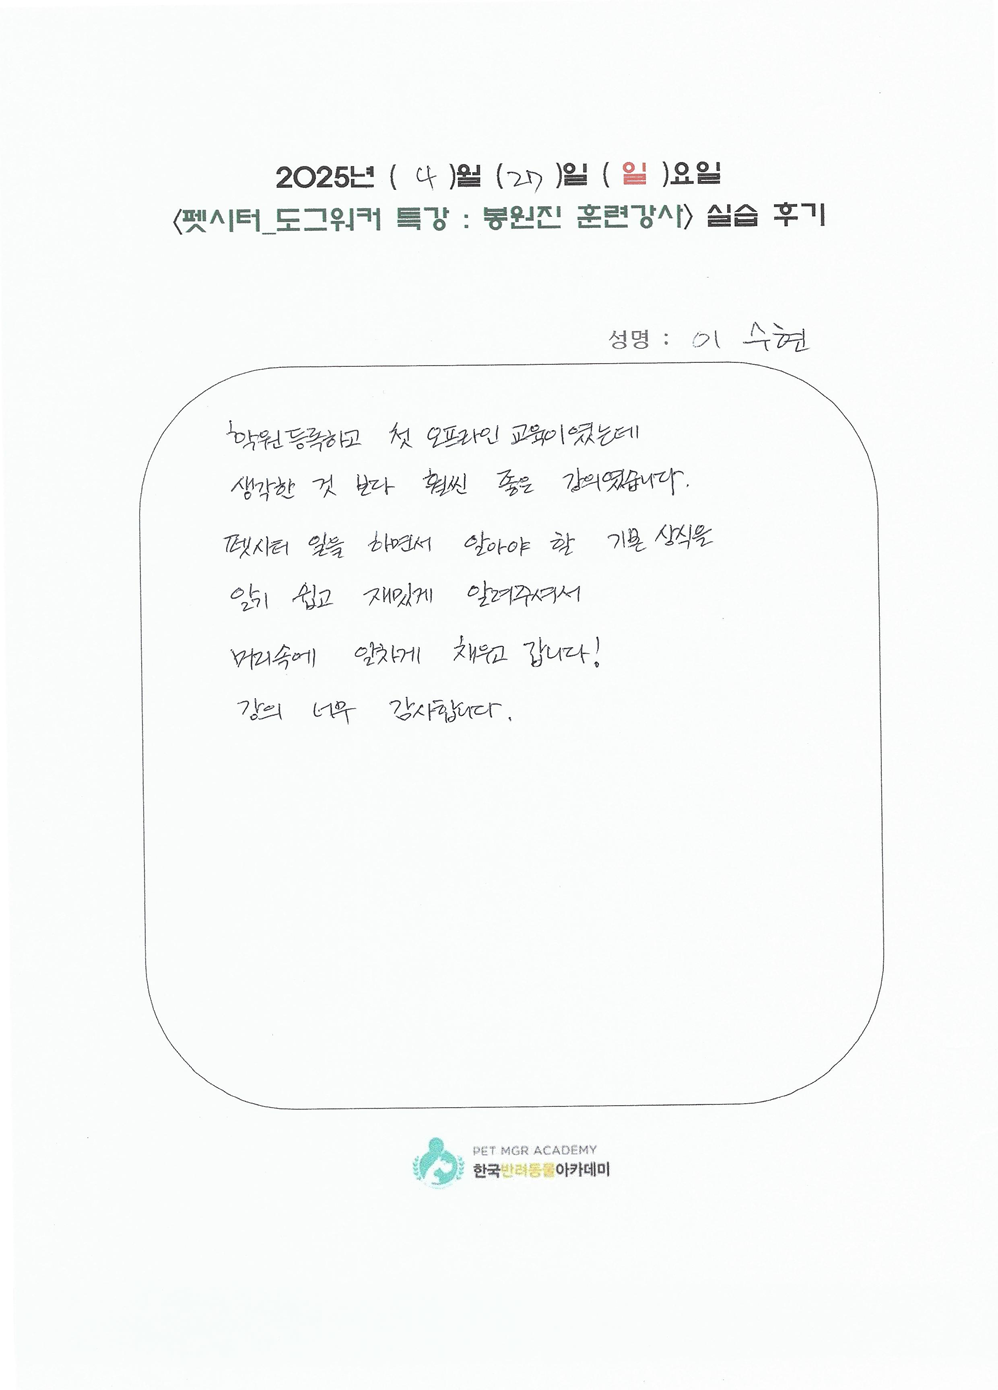 2025년 ( 4 )월 ( 27 )일 ( 일 )요일
<펫시터_도그워커 특강 : 봉원진 훈련강사> 실습 후기
성명 : 이 수현
학원 등록하고 첫 오프라인 교육이였는데
생각한 것 보다 훨씬 좋은 강의였습니다.
펫시터 일을 하면서 알아야 할 기본 상식을
알기 쉽고 재밌게 알려주셔서
머리속에 알차게 채우고 갑니다!
강의 너무 감사합니다.
PET MGR ACADEMY
한국반려동물아카데미